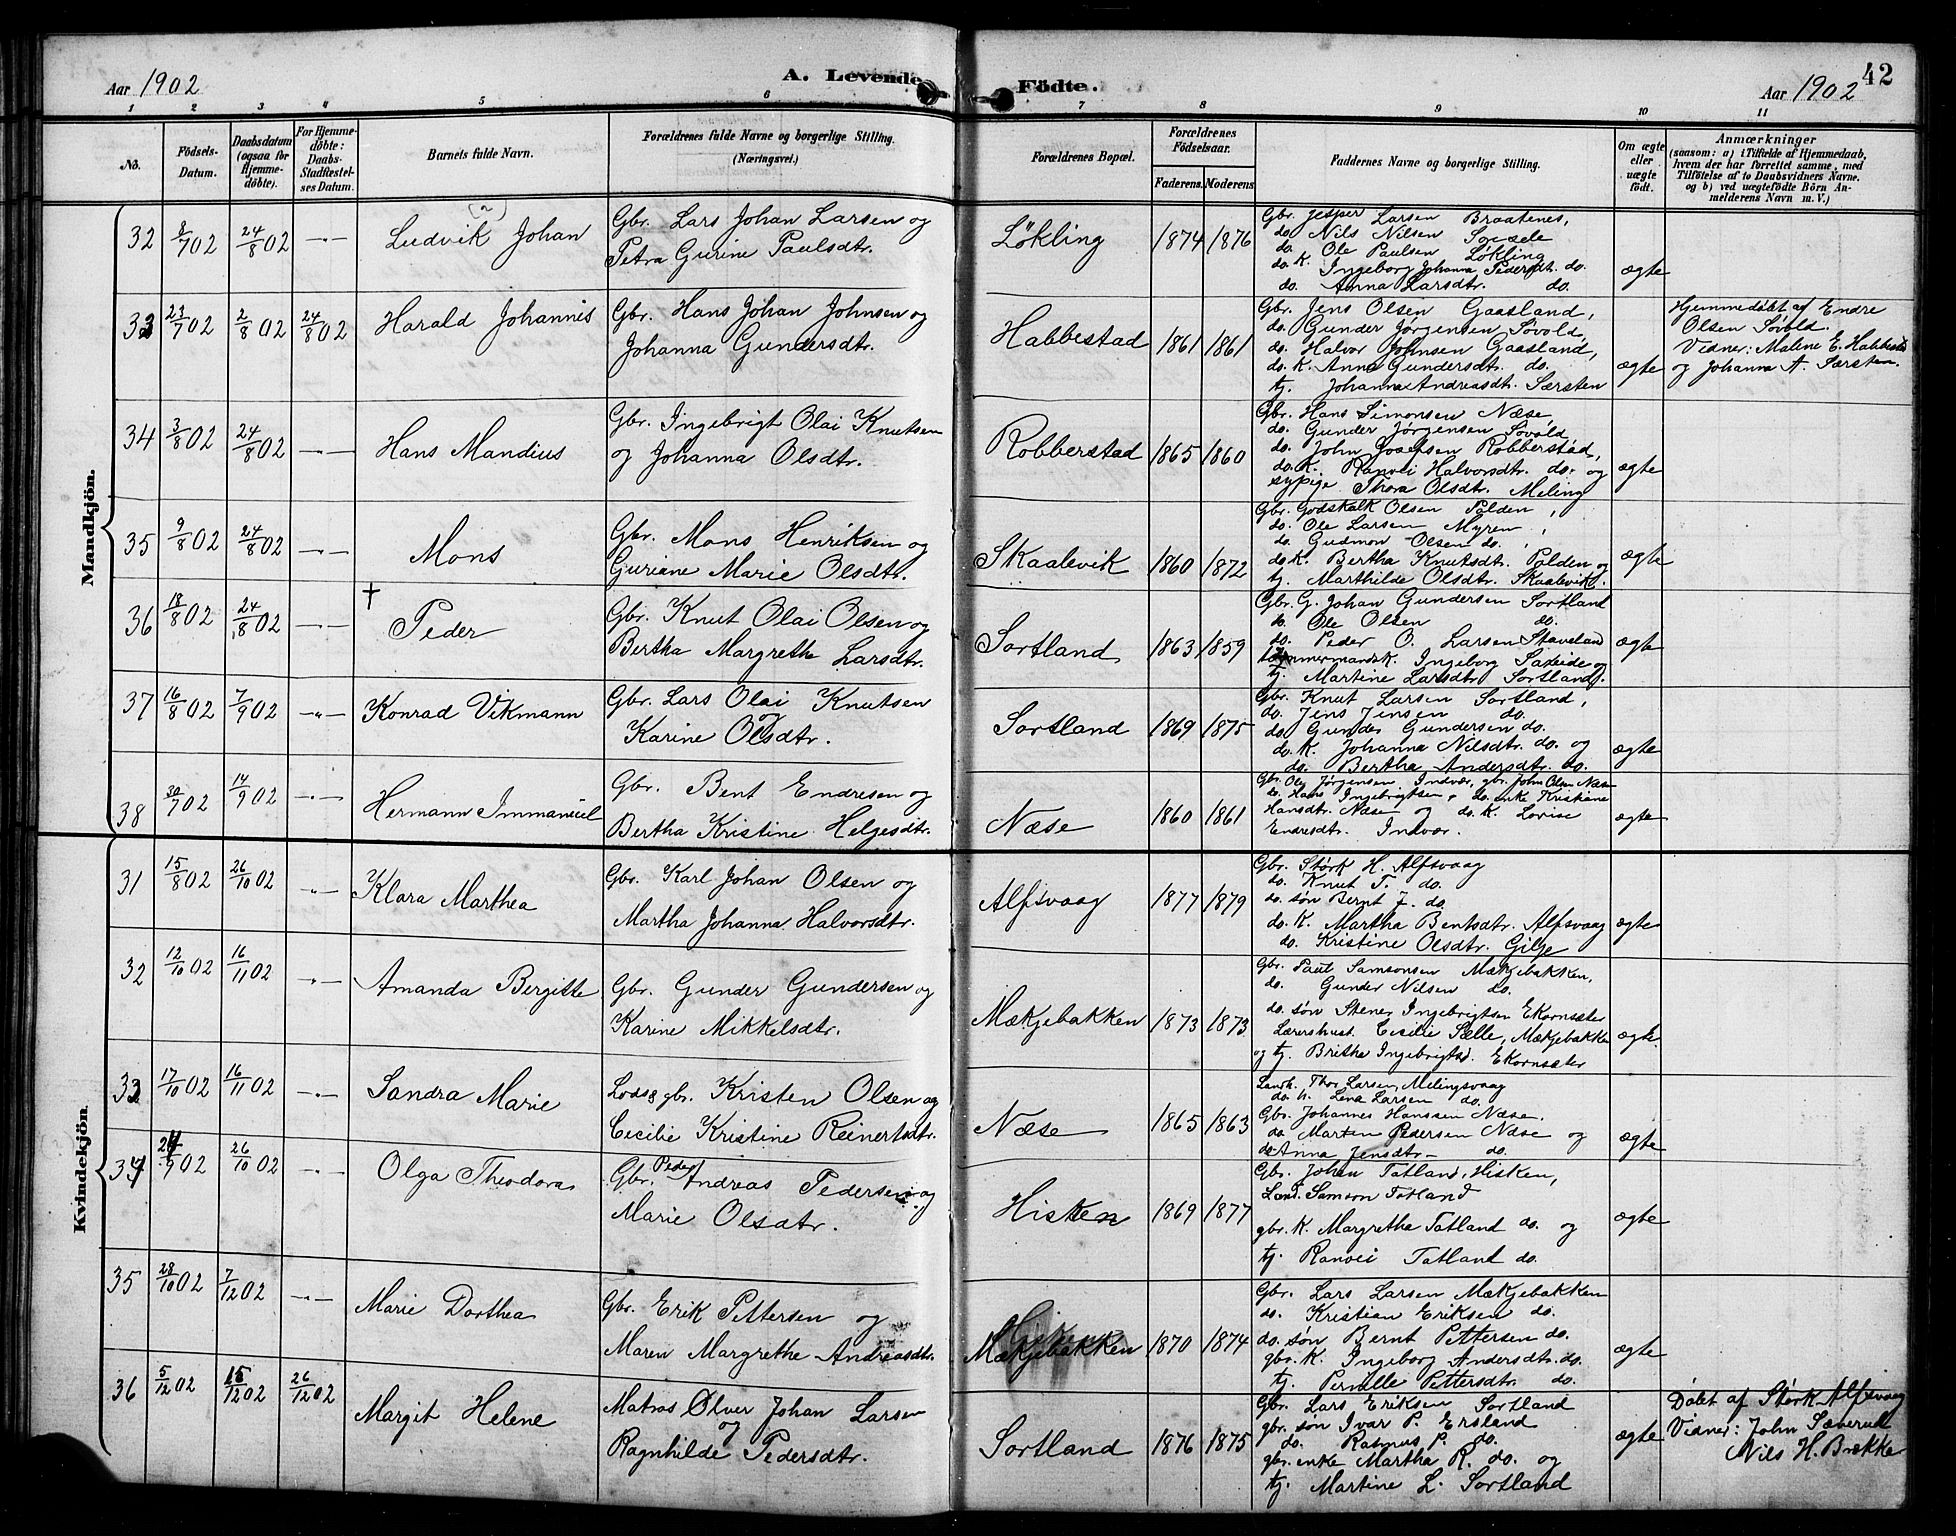 42
Aar 1902 A. Levende Födte. Aar 1902
1 2 3 4 5 6 7 8 9 10 11
No. Födsels-Datum. Daabsdatum (ogsaa for Hjemme-döbte). For Hjemme-döbte: Daabs-Stadfæstel-ses Datum. Barnets fulde Navn. Forældrenes fulde Navne og borgerlige Stilling. (Næringsvei.) Forældrenes Bopæl. Forældrenes Födselsaar. Faderens. Moderens. Faddernes Navne og borgerlige Stilling. Om ægte eller uægte födt. Anmærkninger (saasom: a) i Tilfælde af Hjemmedaab, hvem der har forrettet samme, med Tilföielse af to Daabsvidners Navne. og b) ved uægtefödte Börn An-melderens Navn m. V.)
Mandkjön.
32 8/7 02 24/8 02 -"- Ludvik Johan
Gbr. Lars Johan Larsen og
Petra Gurine Paulsdtr.
Løkling 1874 1876
Gbr. Jesper Larsen Braatenes,
do. Nils Nilsen
do. Ole Paulsen Løkling
do. K. Ingeborg Johanna Pedersdt. do.
do. Anna Larsdtr. do.
ægte
33 23/7 02 2/8 02 24/8 02 Harald Johannes
Gbr. Hans Johan Johnsen og
Johanna Gundersdtr.
Habbestad 1861 1861
Gbr. Jens Olsen Gaasland,
do. Gunder Jørgensen Søvold,
do. Halvor Johnsen Gaasland,
do. K. Anna Gundersdtr. do.
tj. Johanna Andreasdtr. Særsten
ægte
Hjemmedøbt af Endre
Olsen Søvold.
Vidner: Malene E. Habbestad
og Johanna A. Særsten.
34 3/8 02 24/8 02 -"- Hans Mandius
Gbr. Ingebrigt Olai Knutsen
og Johanna Olsdtr.
Robberstad 1865 1860
Gbr. Hans Simonsen Næse,
do. Gunder Jørgensen Søvold,
do. John Josefsen Robberstad,
do. K. Ranvei Halvorsdtr. do. og
sypige Thora Olsdtr. Meling
ægte
35 9/8 02 24/8 02 -"- Mons
Gbr. Mons Henriksen og
Guriane Marie Olsdtr.
Skaalevik 1860 1872
Gbr. Godskalk Olsen Polden,
do. Ole Larsen Myren,
do. Gudmon Olsen do.,
do K. Bertha Knutsdt. Polden og
tj. Marthilde Olsdtr. Skaalevik.
ægte
36 18/8 02 24/8 02 -"- † Peder
Gbr. Knut Olai Olsen og
Bertha Margrethe Larsdtr.
Sortland 1863 1859
Gbr. G. Johan Gundersen Sortland
do. Ole Olsen do.
do. Peder O. Larsen Staveland
tømmermandsk. Ingeborg og
tj. Martine Larsdtr Sortland.
ægte
37 16/8 02 7/9 02 -"- Konrad Vikmann
Gbr. Lars Olai Knutsen
og Karine Olsdtr.
Sortland 1869 1875
Gbr. Knut Larsen Sortland,
do. Jens Jensen do.
do. Gunder Gundersen do.
do. K. Johanna Nilsdtr. do. og
do. Bertha Andersdtr. do.
ægte
38 30/7 02 14/9 02 -"- Hermann Immanuel
Gbr. Bent Endresen og
Bertha Kristine Helgesdtr.
Næse 1860 1861
Gbr. Ole Jørgensen Indvær, gbr. John Olsen Næse
do. Hans Ingebrigtsen, do. enke Kristiane
Hansdtr. Næse og do. K. Lovise
Endresdtr. Indvær.
ægte
Kvindekjön.
31 15/8 02 26/10 02 -"- Klara Marthea
Gbr. Karl Johan Olsen og
Martha Johanna Halvorsdtr.
Alfsvaag 1877 1879
Gbr. Størk H. Alfsvaag
do. Knut T. do.
do. søn Bernt J. do.
do. K. Martha Bentsdtr. Alfsvaag
do. Kristine Olsdtr. Gilje
ægte
32 12/10 02 16/11 02 -"- Amanda Bergitte
Gbr. Gunder Gundersen og
Karine Mikkelsdtr.
Mækjebakken 1873 1873
Gbr. Paul Samsonsen Mækjebakken,
do. Gunder Nilsen do.
do. søn Stener Ingebrigtsen Ekornsæter
Lærershust. Cecilie Sælle, Mækjebakken
og tj. Britha Ingebrigtsd. Ekornsæter
ægte.
33 17/10 02 16/11 02 -"- Sandra Marie
Lods & gbr. Kristen Olsen og
Cecilie Kristine Reinertsdtr.
Næse 1865 1863
Landh. Thor Larsen, Melingsvaag
do. h. Lena Larsen do.
Gbr. Johannes Hanssen Næse.
do Marten Pedersen Næse og
do Anna Jensdtr- do.
ægte
34 24/9 02 26/10 02 -"- Olga Theodora
Gbr. Peder Andreas Pedersen og
Marie Olsdtr.
Hisken 1869 1877
Gbr. Johan Tatland, Hisken,
Land. Samson Tatland
gbr. K. Margretha Tatland do. og
tj. Ranvei Tatland do.
ægte
35 28/10 02 7/12 02 -"- Marie Dorthea
Gbr. Erik Pettersen og
Maren Margrethe Andreasdtr.
Mækjebakken 1870 1874
Gbr. Lars Larsen Mækjebakken
do. Kristian Eriksen do.
do. søn Bernt Pettersen do.
gbr. K. Ingeborg Andersdtr. do.
tj. Pernille Pettersdtr. do.
ægte
36 5/12 02 15/12 02 26/12 02 Margit Helene
Matros Ølver Johan Larsen
og Ragnhilde Pedersdtr.
Sortland 1876 1875
Gbr. Lars Eriksen Sortland
gbr. søn Ivar P. Ersland
do. Rasmus P. do.
gbr. enke Martha R. do. og
tj. Martine L. Sortland
ægte
Døbt af Størk Alfsvaag
Vidner: John
Nils H. Brække